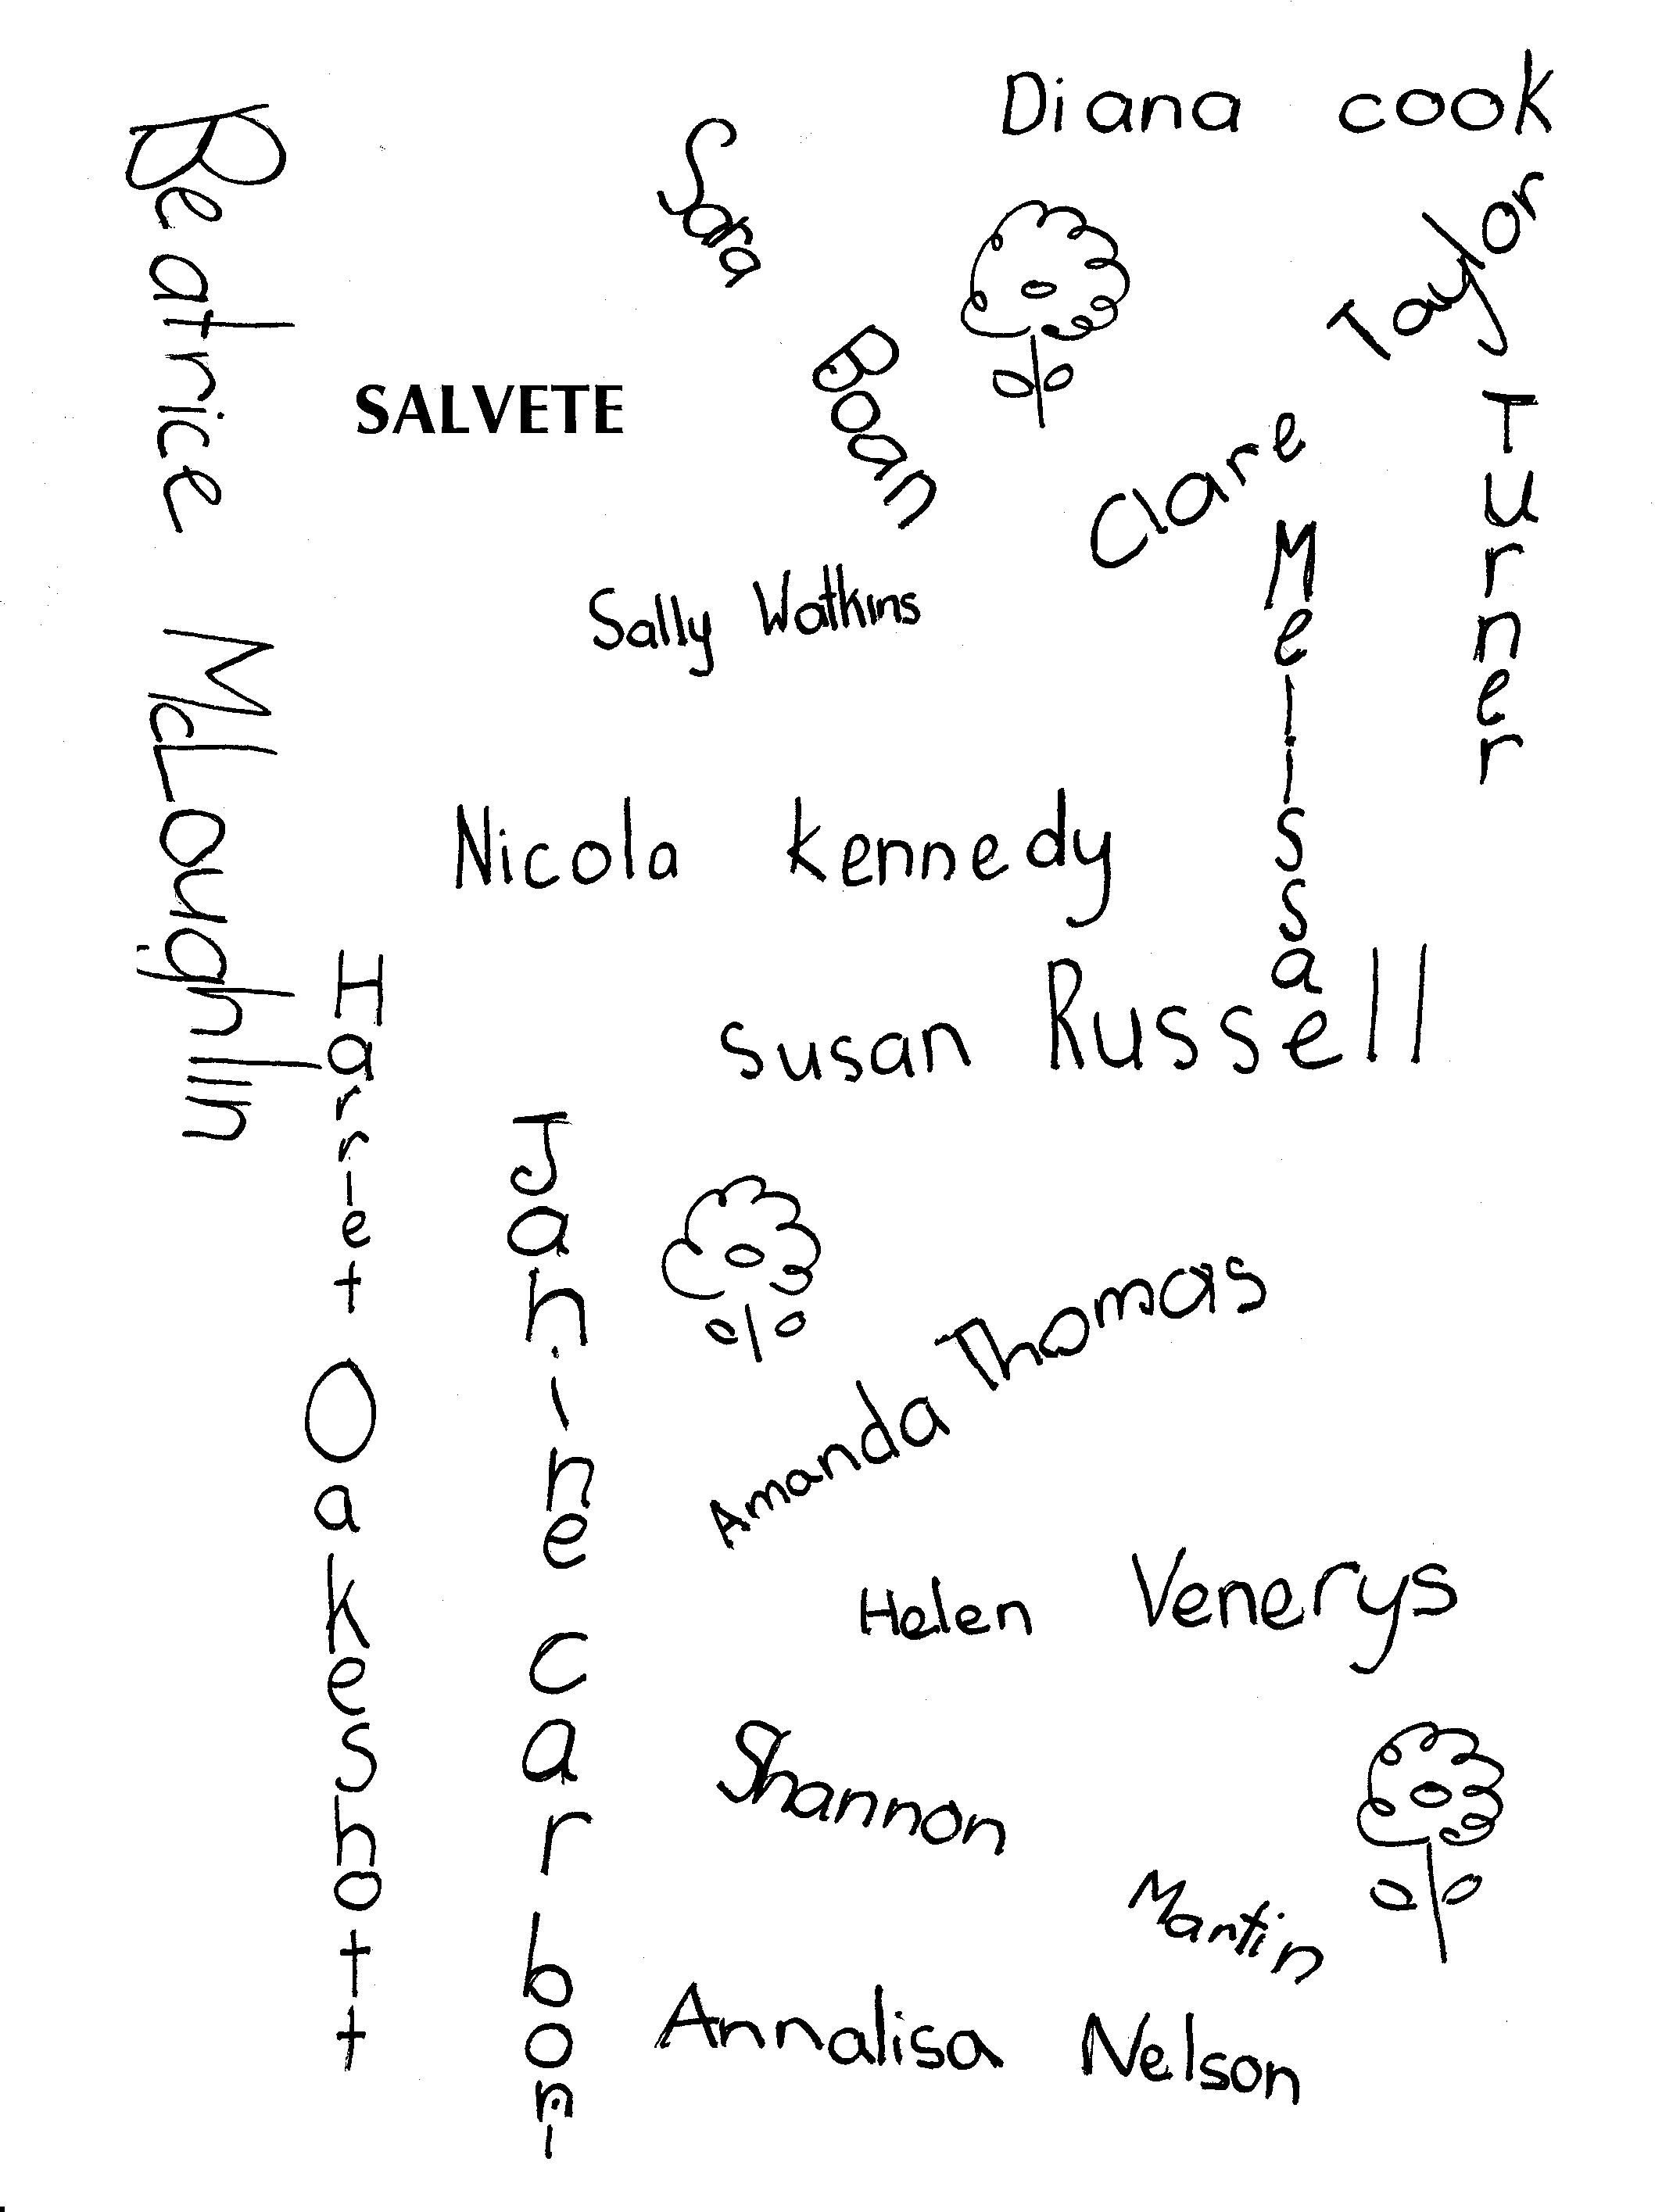 Diana cook
Beatrice McLoughlin
Sara Boan
Clare Taylor
SALVETE
Melissa Turner
Sally Watkins
Nicola Kennedy
Susan Russell
Harriet Oakeshott
Janine Carboni
Amanda Thomas
Helen Venerys
Shannon Martin
Annalisa Nelson